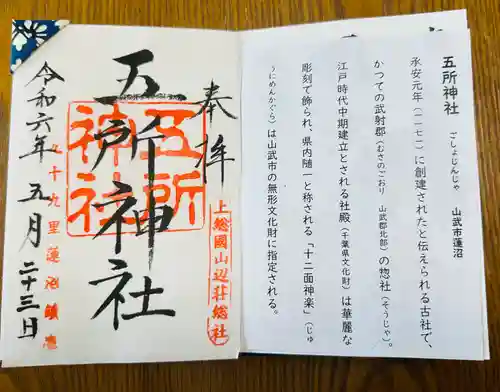 五所神社 ごしょじんじゃ 山武市蓮沼
永安元年（一一七一）に創建されたと伝えられる古社で、
かつての武射郡（むさのごおり 山武郡北部）の惣社（そうじゃ）。
江戸時代中期建立とされる社殿（千葉県文化財）は華麗な
彫刻で飾られ、県内随一と称される「十二面神楽」（じゅ
うにめんかぐら）は山武市の無形文化財に指定される。
奉拝
上総國山辺荘総社
五所神社
五所神社
九十九里蓮沼鎮
令和六年 五月 二十三日